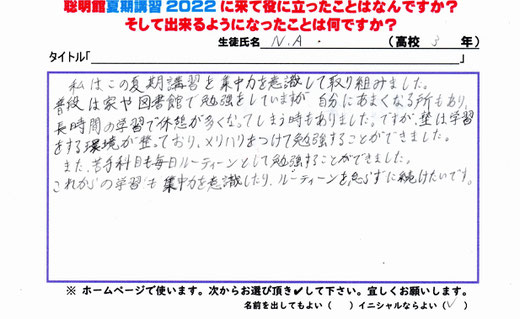 聡明館夏期講習2022に来て役に立ったことはなんですか?
そして出来るようになったことは何ですか?
生徒氏名 N.A. (高校 3 年)
タイトル「 」
私はこの夏期講習を集中力を意識して取り組みました。
普段は家や図書館で勉強をしていますが自分にあまくなる所もあり、
長時間の学習で休憩が多くなってしまう時もありました。ですが、塾は学習
をする環境が整っており、メリハリをつけて勉強することができました。
また、苦手科目も毎日ルーティーンとして勉強することができました。
これからの学習も集中力を意識したり、ルーティーンを怠らずに続けたいです。
※ ホームページで使います。次からお選び頂き✔して下さい。宜しくお願いします。
名前を出してもよい( ) イニシャルならよい(✓)